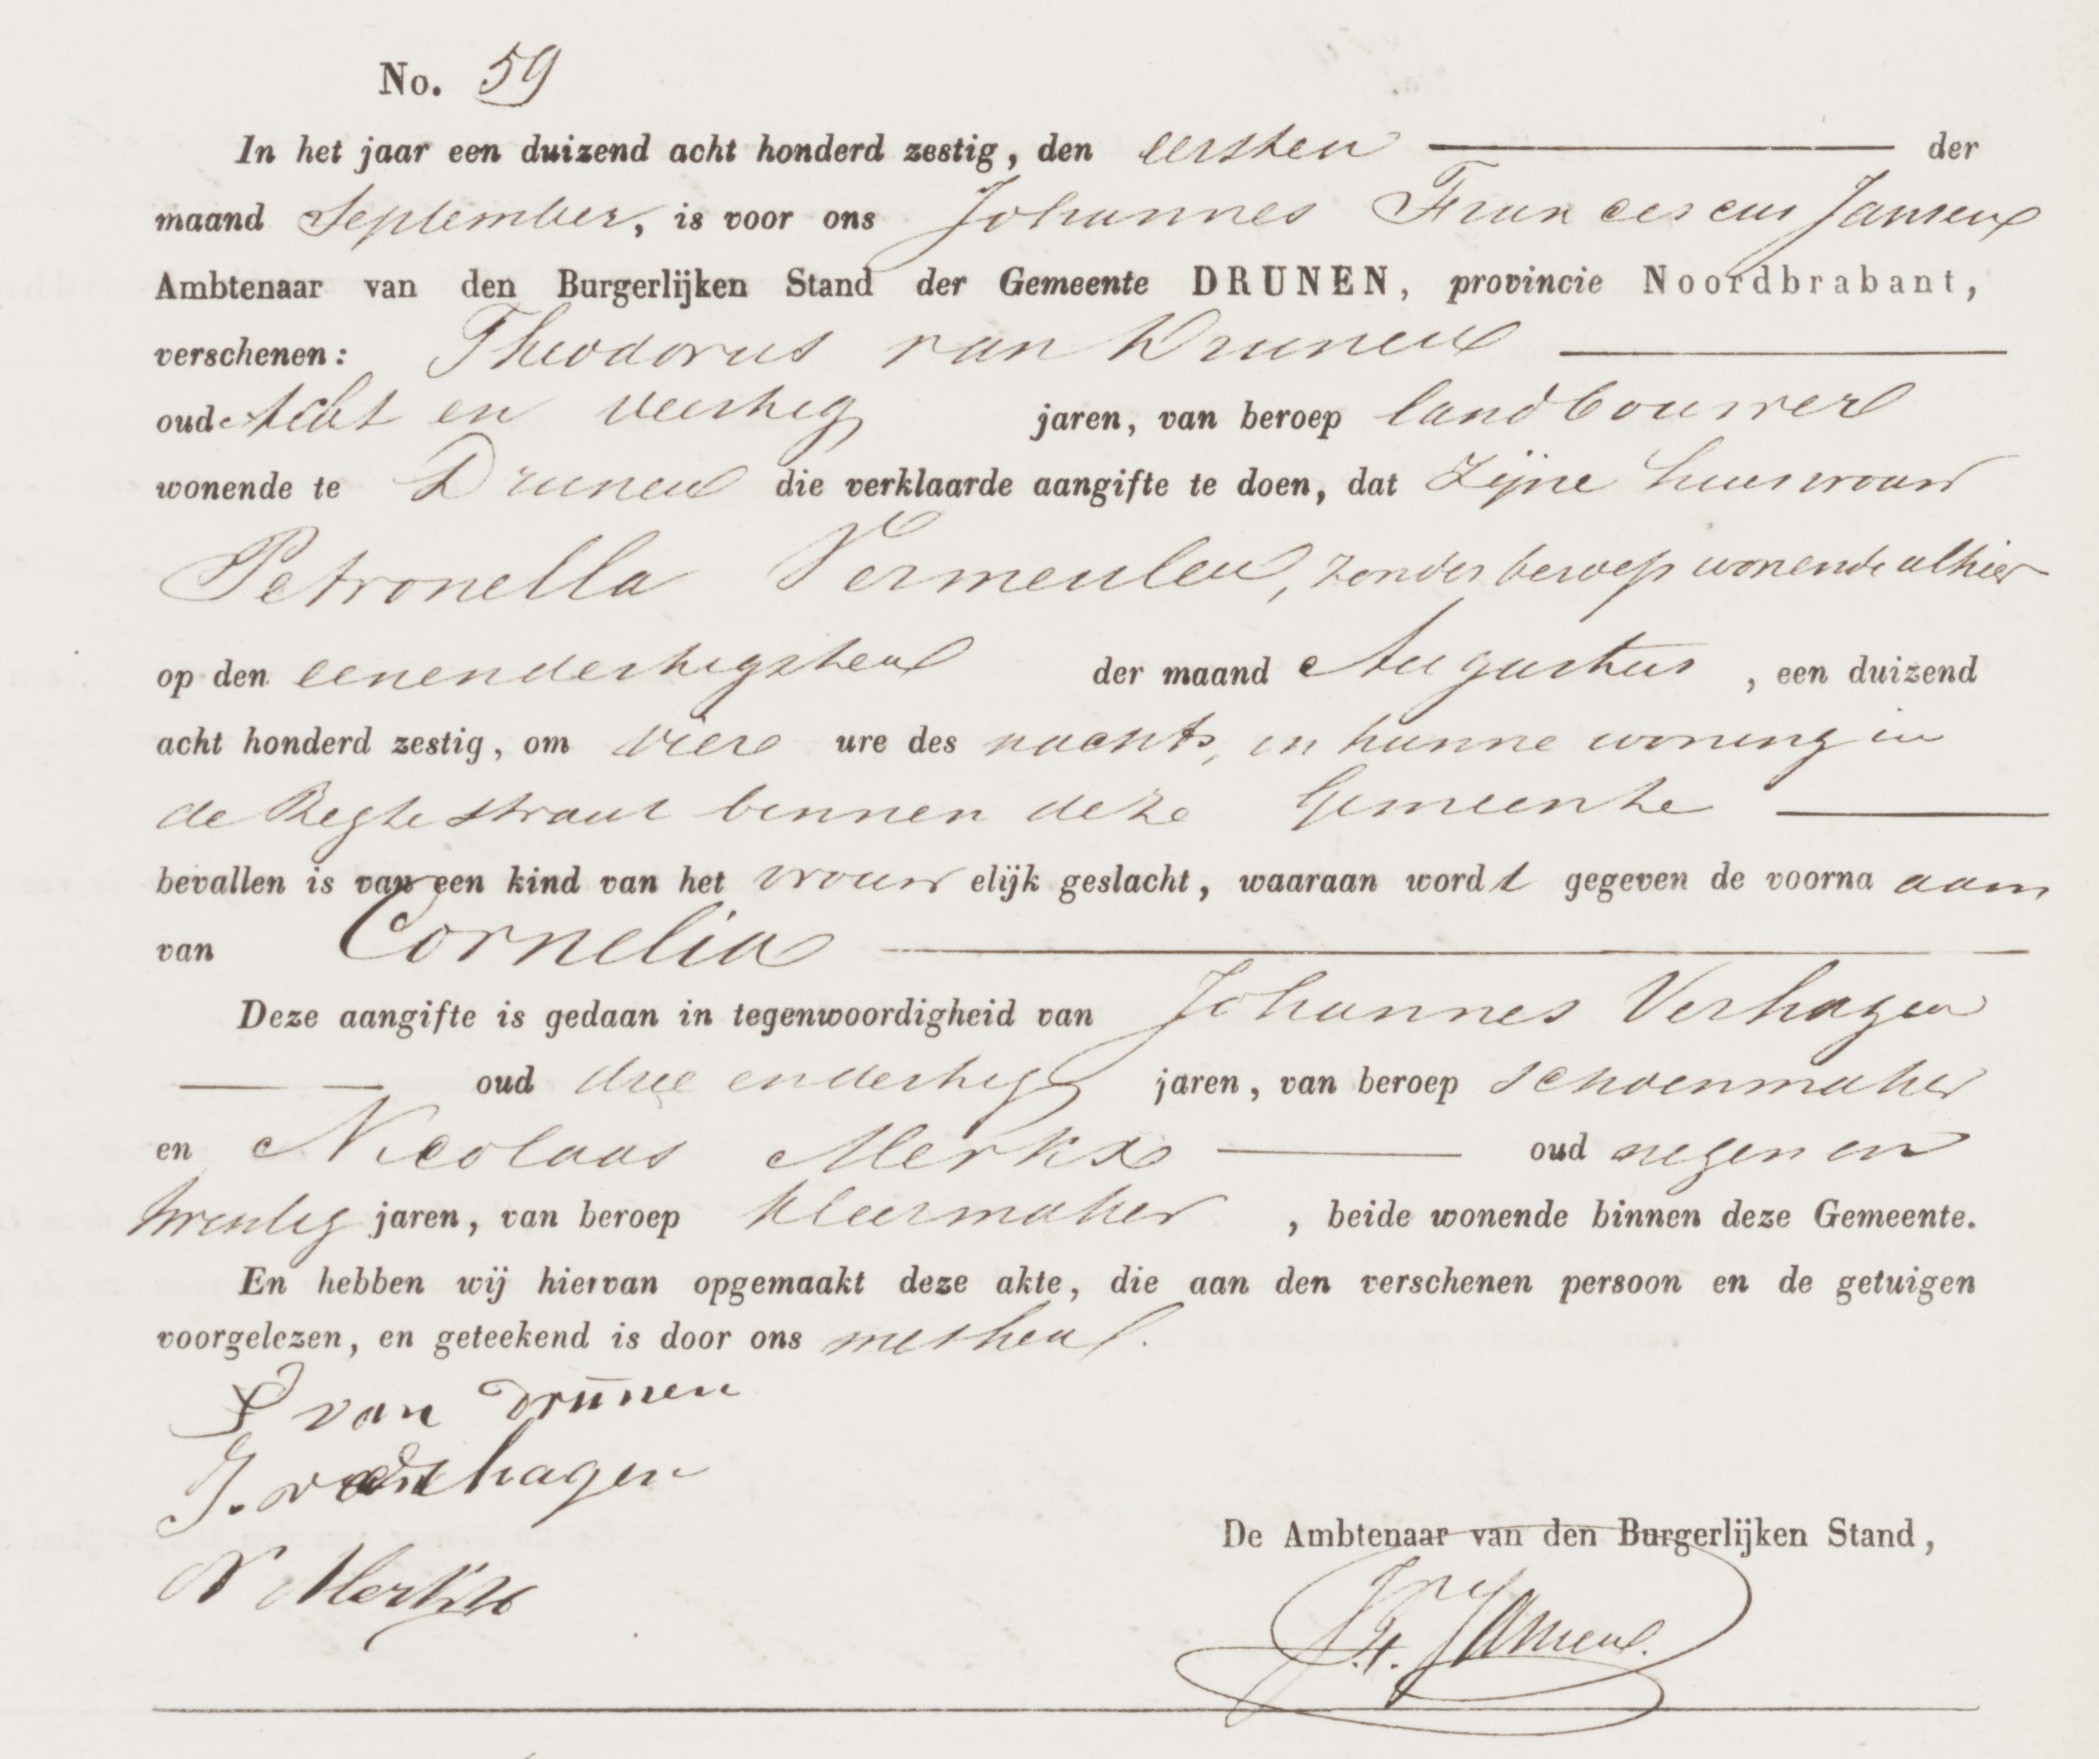 No. 59
In het jaar een duizend acht honderd zestig, den eersten der
maand September, is voor ons Johannes Franciscus Jansen
Ambtenaar van den Burgerlijken Stand der Gemeente DRUNEN, provincie Noordbrabant,
verschenen: Theodorus van Drunen
oud Acht en veertig jaren, van beroep landbouwer
wonende te Drunen die verklaarde aangifte te doen, dat zijne huisvrouw
Petronella Vermeulen, zonder beroep wonende alhier
op den eenendertigsten der maand Augustus, een duizend
acht honderd zestig, om vier ure des nachts, in hunne woning in
de Regtestraat binnen deze Gemeente
bevallen is van een kind van het vrouwelijk geslacht, waaraan wordt gegeven de voorna aam
van Cornelia
Deze aangifte is gedaan in tegenwoordigheid van Johannes Verhagen
oud drie en dertig jaren, van beroep schoenmaker
en Nicolaas Merkx oud negen en
twentig jaren, van beroep kleermaker, beide wonende binnen deze Gemeente.
En hebben wij hiervan opgemaakt deze akte, die aan den verschenen persoon en de getuigen
voorgelezen, en geteekend is door ons met hen.
van Drunen
J. verhagen
N Merkx
De Ambtenaar van den Burgerlijken Stand,
J.F. Jansen.